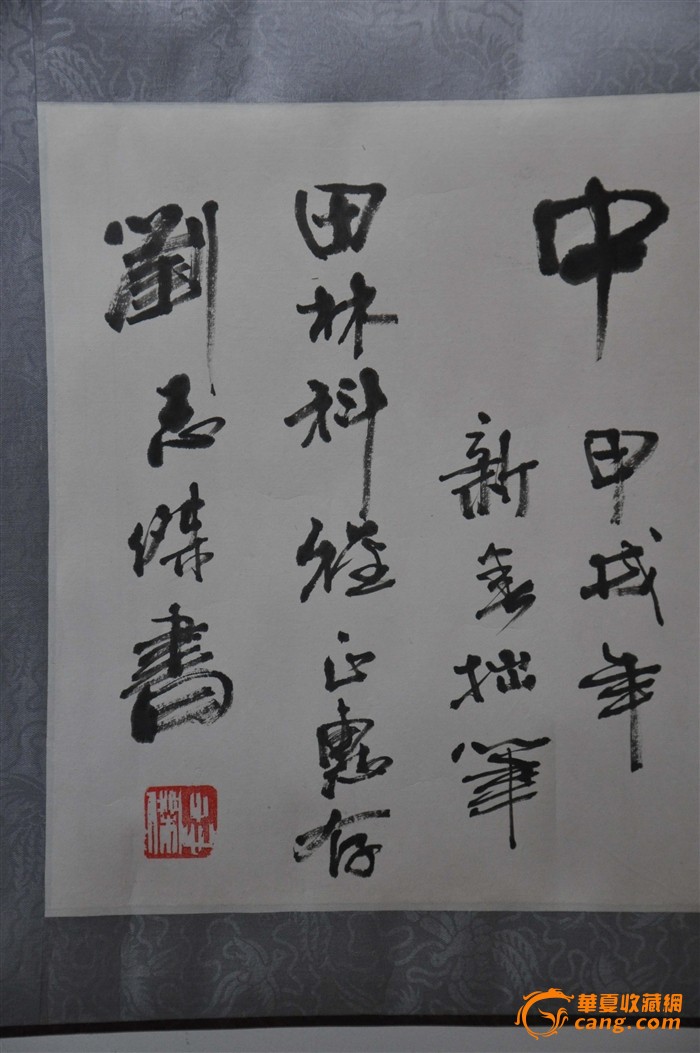 中
甲戌年
新春拙筆
田林科正惠存
劉志傑書
傑
華夏收藏網
cang.com